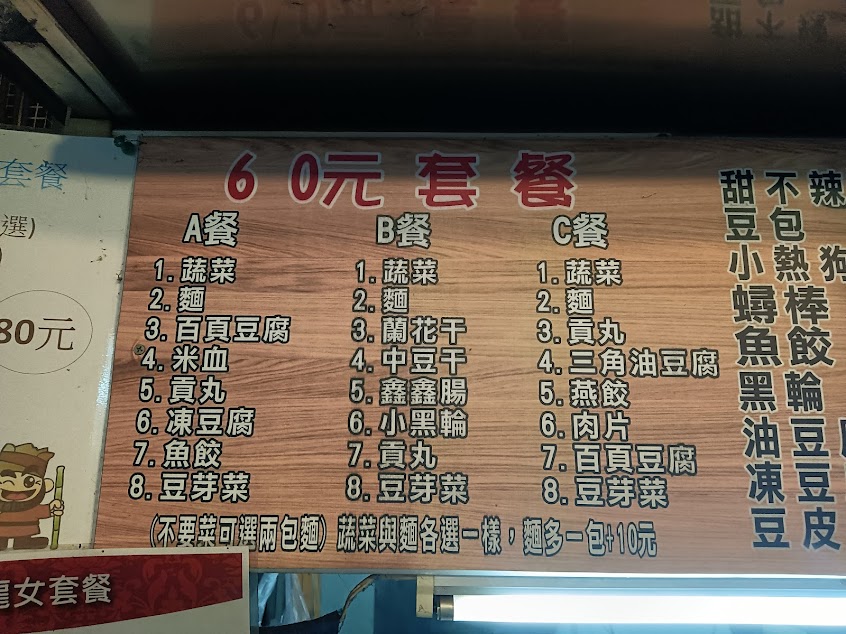 套餐
選)
)
80元
龍女套餐
60元套餐
A餐
1.蔬菜
2.麵
3.百頁豆腐
4.米血
5.貢丸
6.凍豆腐
7.魚餃
8.豆芽菜
B餐
1.蔬菜
2.麵
3.蘭花干
4.中豆干
5.鑫鑫腸
6.小黑輪
7.貢丸
8.豆芽菜
C餐
1.蔬菜
2.麵
3.貢丸
4.三角油豆腐
5.燕餃
6.肉片
7.百頁豆腐
8.豆芽菜
(不要菜可選兩包麵) 蔬菜與麵各選一樣，麵多一包+10元
甜不辣
豆包
小熱狗
蟳棒
魚餃
黑輪
油豆
凍豆
豆皮